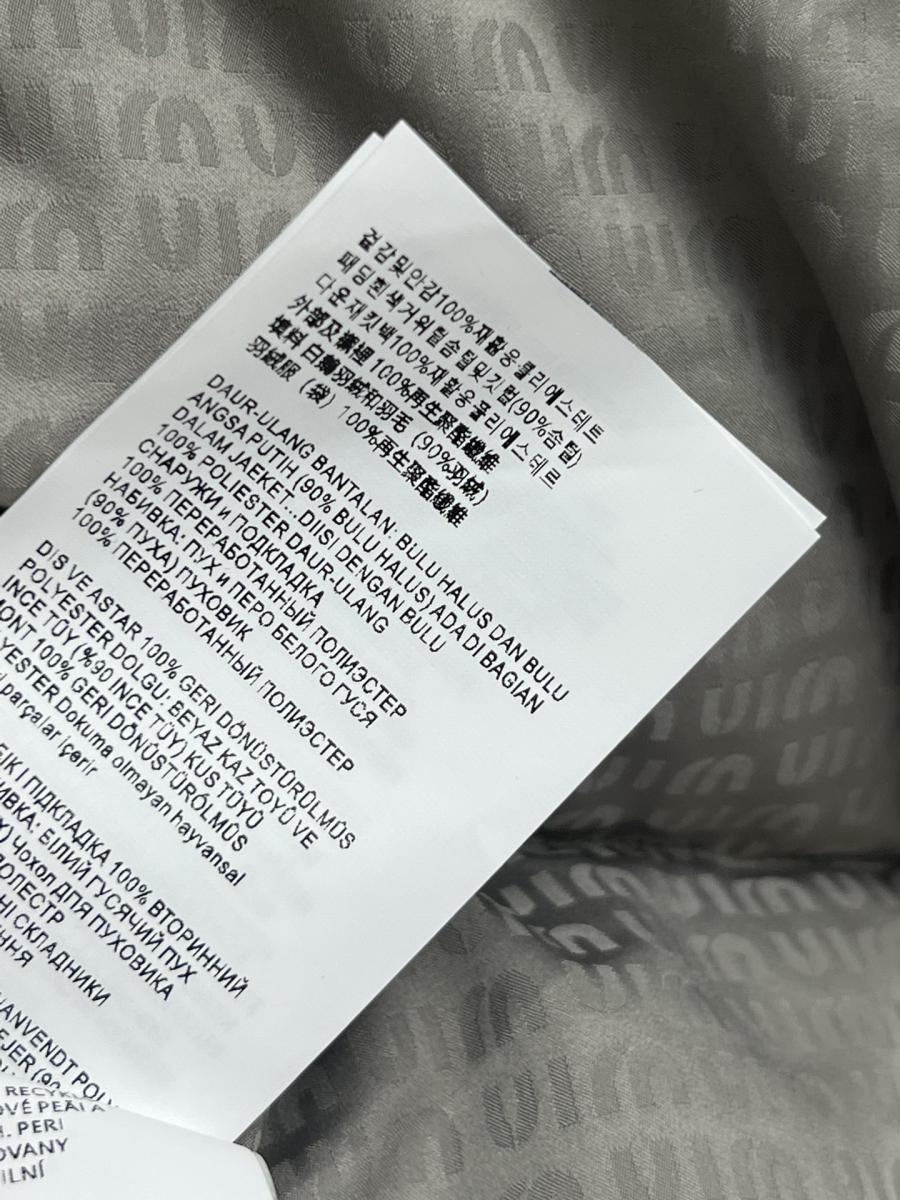 겉감및안감100%재활용폴리에스테트
패딩흰색거위털솜털및깃럽(90%솜탈)
다운재킷백100%재활용폴리에스테르
外部及襯裡 100%再生聚酯纖維
填料 白鵝羽絨和羽毛 (90%羽絨)
羽絨服 (袋) 100%再生聚酯纖維
DAUR-ULANG BANTALAN: BULU HALUS DAN BULU
ANGSA PUTIH (90% BULU HALUS) ADA DI BAGIAN
DALAM JAEKET...DIISI DENGAN BULU
100% POLIESTER DAUR-ULANG
СНАРУЖИ и ПОДКЛАДКА
100% ПЕРЕРАБОТАННЫЙ ПОЛИЭСТЕР
НАБИВКА: ПУХ и ПЕРО БЕЛОГО ГУСЯ
(90% ПУХА) ПУХОВИК
100% ПЕРЕРАБОТАННЫЙ ПОЛИЭСТЕР
DIS VE ASTAR 100% GERI DÖNÜSTÜRÜLMÜS
POLYESTER DOLGU: BEYAZ KAZ TOYÜ VE
INCE TÜY (%90 INCE TÜY) KUS TÜYÜ
MONT 100% GERI DÖNÜSTÜRÖLMÜS
YESTER Dokuma olmayan hayvansal
parçalar içerir
ПІДКЛАДКА 100% ВТОРИННИЙ
БІЛИЙ ГУСЯЧИЙ ПУХ
Чохол ДПЯ ПУХОВИКА
СКЛАДНИКИ
PERI